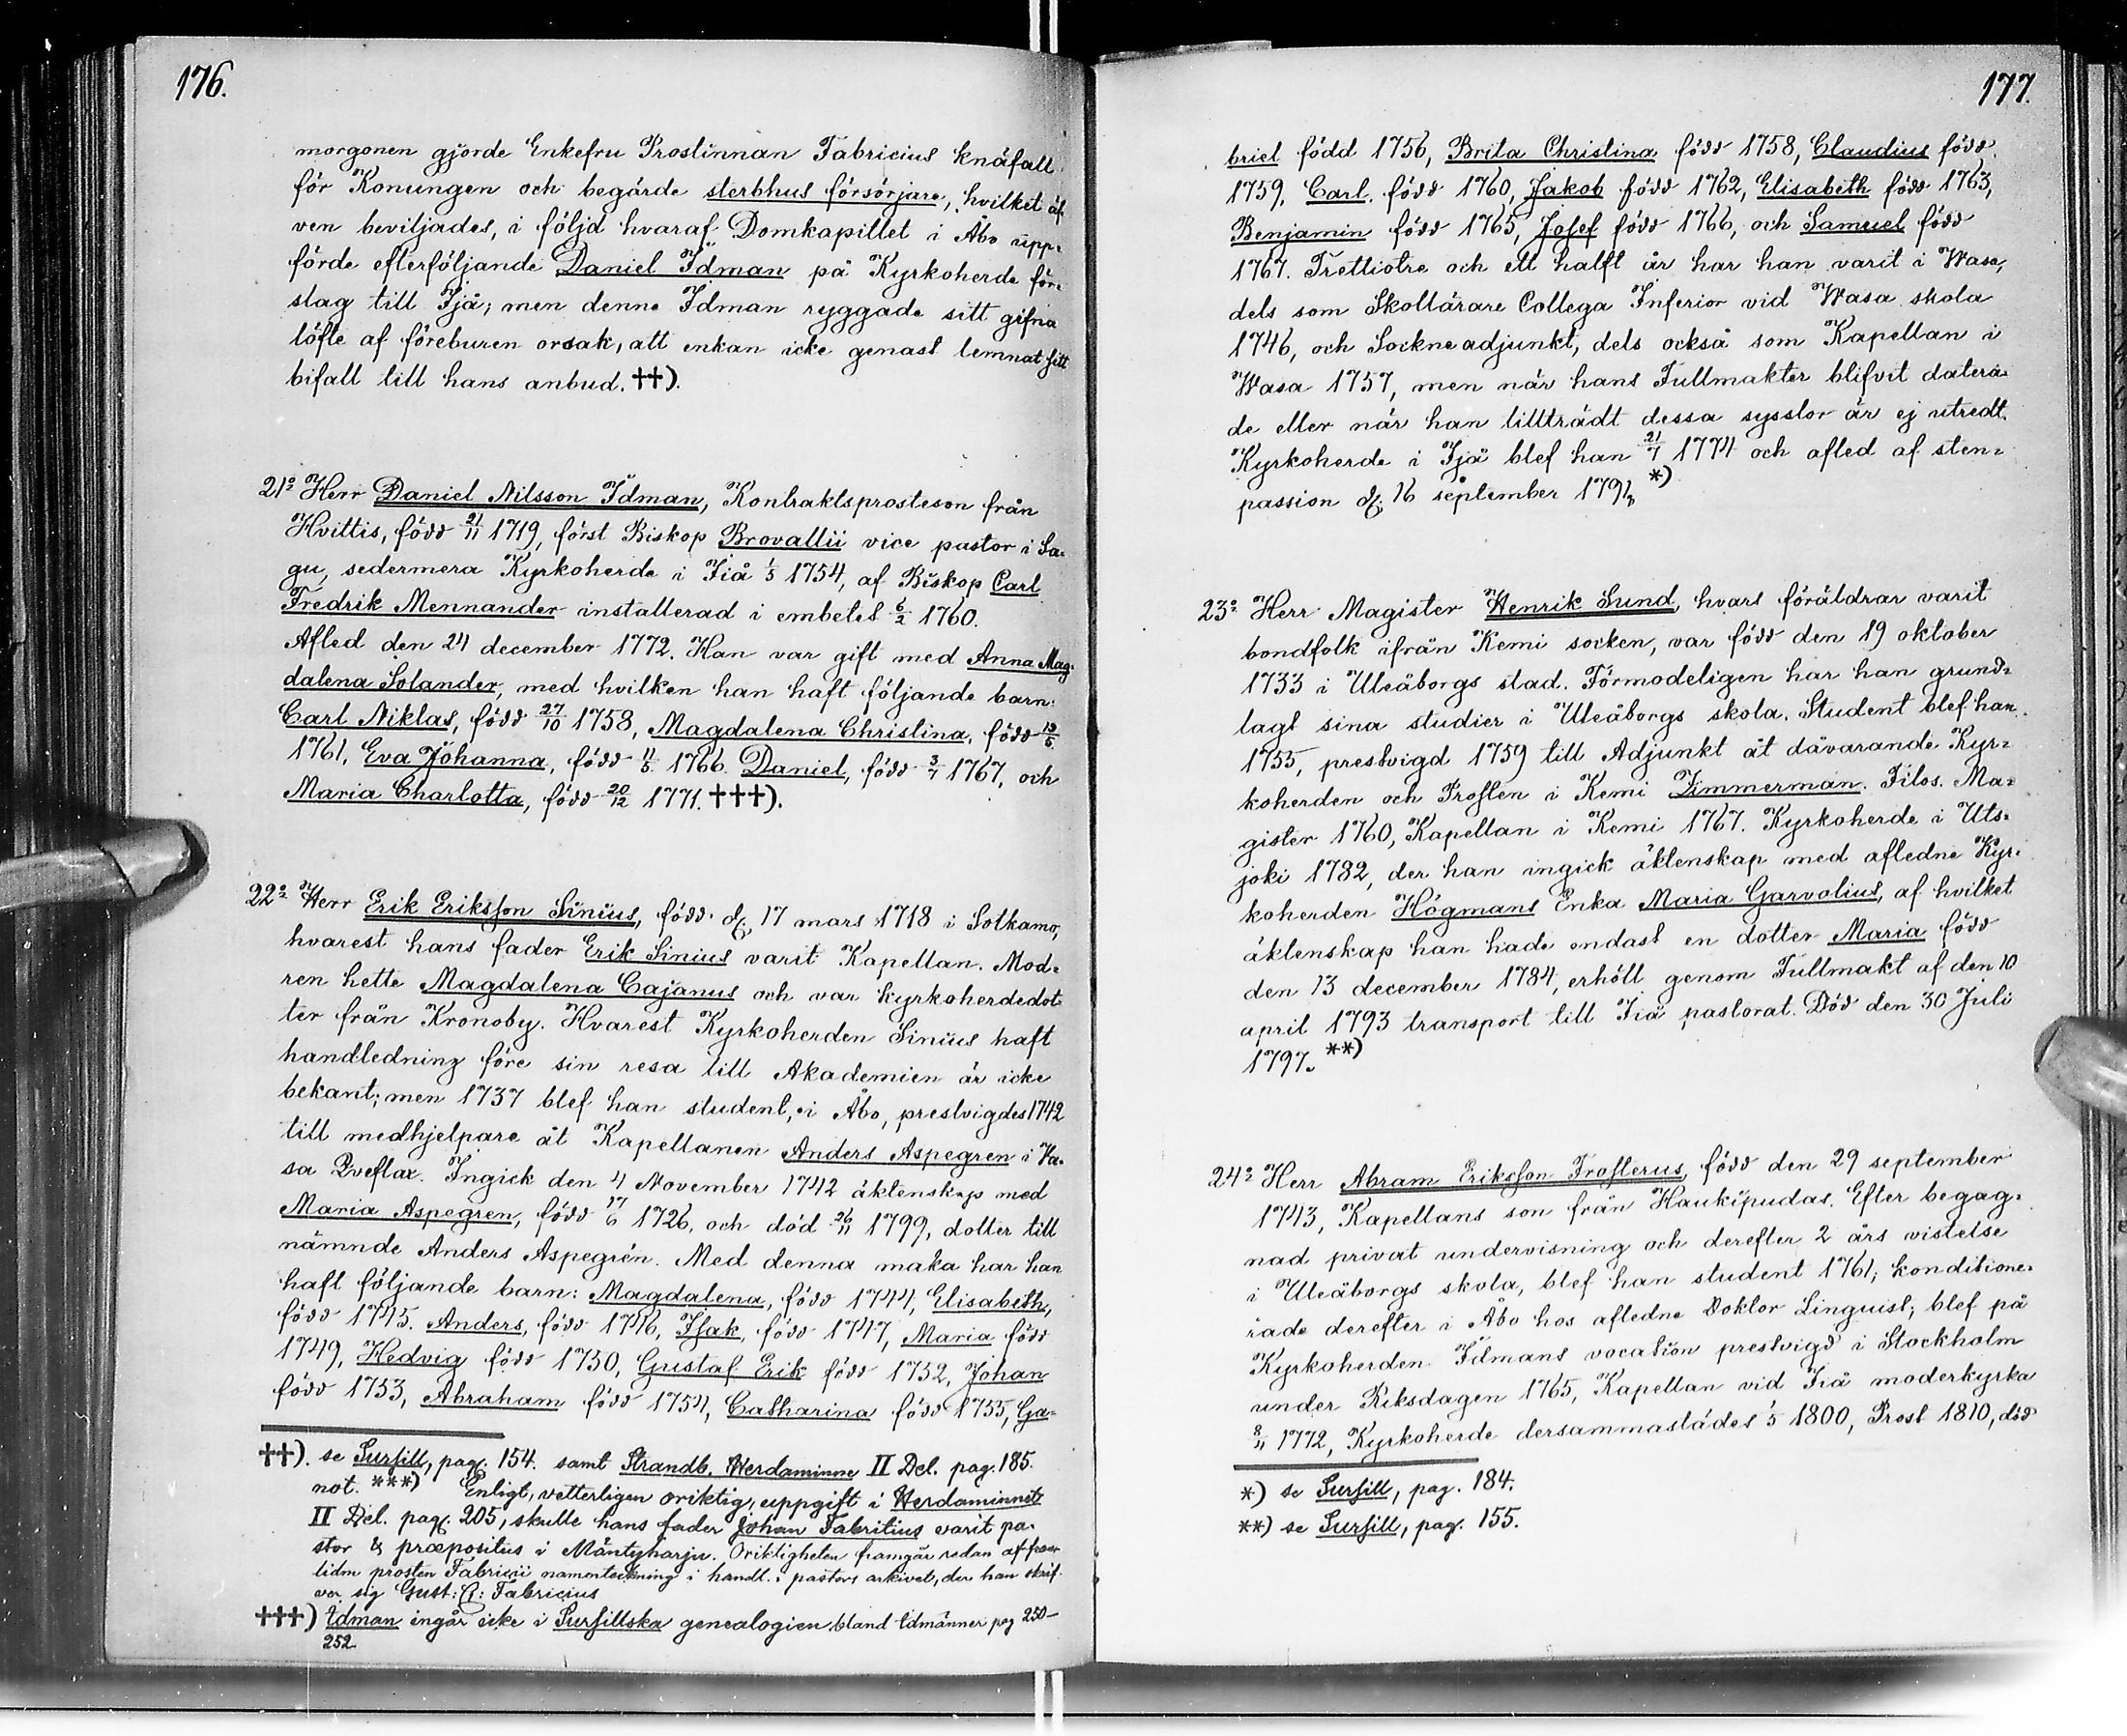 176.
morgonen gjorde Enkefru Prostinnan Fabricius knäfall
för Konungen och begärde sterbhus försörjare, hvilket äf-
ven beviljades, i följd hvaraf Domkapitlet i Åbo upp-
förde efterföljande Daniel Idman på Kyrkoherde för-
slag till Ijå; men denne Idman ryggade sitt gifna
löfte af föreburen orsak, att enkan icke genast lemnat sitt
bifall till hans anbud. ††).
21º Herr Daniel Nilsson Idman, Kontraktsprosteson från
Hvittis, född 21/11 1719, först Biskop Brovallii vice pastor i Sa-
gu, sedermera Kyrkoherde i Iiå 1/5 1754, af Biskop Carl
Fredrik Mennander installerad i embetet 6/2 1760.
Afled den 24 december 1772. Han var gift med Anna Mag-
dalena Solander, med hvilken han haft följande barn:
Carl Niklas, född 27/10 1758, Magdalena Christina, född 13/5
1761, Eva Johanna, född 11/5 1766. Daniel, född 3/7 1767, och
Maria Charlotta, född 20/12 1771. †††).
22º Herr Erik Eriksson Sinius, född d. 17 mars 1718 i Sotkamo,
hvarest hans fader Erik Sinius varit Kapellan. Mod-
ren hette Magdalena Cajanus och var kyrkoherdedot-
ter från Kronoby. Hvarest Kyrkoherden Sinius haft
handledning före sin resa till Akademien är icke
bekant; men 1737 blef han student, i Åbo, prestvigdes 1742
till medhjelpare åt Kapellanen Anders Aspegren i Va-
sa Qveflax. Ingick den 4 November 1742 äktenskap med
Maria Aspegren, född 17/6 1726, och död 26/11 1799, dotter till
nämnde Anders Aspegrén. Med denna maka har han
haft följande barn: Magdalena, född 1744, Elisabeth,
född 1745. Anders, född 1746, Isak, född 1747, Maria född
1749, Hedvig född 1750, Gustaf Erik född 1752, Johan
född 1753, Abraham född 1754, Catharina född 1755, Ga-
††) se Sursill, pag. 154. samt Strandb. Herdaminne II Del. pag. 185.
not. ***) Enligt, vetterligen oriktig, uppgift i Herdaminnet
II Del. pag. 205, skulle hans fader Johan Fabritius varit pa-
stor & præpositus i Mäntyharju. Oriktigheten framgår redan af fram-
lidne prosten Fabricii namnteckning i handl. i pastors arkivet, der han skrif-
ver sig Gust: E: Fabricius
†††) Idman ingår icke i Sursillska genealogien bland Idmänner pag 250-
252.
177.
briel född 1756, Brita Christina född 1758, Claudius född
1759, Carl. född 1760, Jakob född 1762, Elisabeth född 1763,
Benjamin född 1765, Josef född 1766, och Samuel född
1767. Trettiotre och ett halft år har han varit i Wasa,
dels som Skollärare Collega Inferior vid Wasa skola
1746, och Sockneadjunkt, dels också som Kapellan i
Wasa 1757, men när hans Fullmakter blifvit datera-
de eller när han tillträdt dessa sysslor är ej utredt.
Kyrkoherde i Ijå blef han 21/7 1774 och afled af sten-
passion d. 16 september 1791, *)
23º Herr Magister Henrik Lund, hvars föräldrar varit
bondfolk ifrån Kemi socken, var född den 19 oktober
1733 i Uleåborgs stad. Förmodeligen har han grund-
lagt sina studier i Uleåborgs skola. Student blef han
1755, prestvigd 1759 till Adjunkt åt dåvarande Kyr-
koherden och Prosten i Kemi Zimmerman. Filos. Ma-
gister 1760, Kapellan i Kemi 1767. Kyrkoherde i Uts-
joki 1782, der han ingick äktenskap med afledne Kyr-
koherden Högmans Enka Maria Garvolius, af hvilket
äktenskap han hade endast en dotter Maria född
den 13 december 1784, erhöll genom Fullmakt af den 10
april 1793 transport till Iiå pastorat. Död den 30 Juli
1797. **)
24º Herr Abram Eriksson Frosterus, född den 29 september
1743, Kapellans son från Haukipudas. Efter begag-
nad privat undervisning och derefter 2 års vistelse
i Uleåborgs skola, blef han student 1761; konditione-
rade derefter i Åbo hos afledne Doktor Linguist; blef på
Kyrkoherden Idmans vocation prestvigd i Stockholm
under Riksdagen 1765, Kapellan vid Iiå moderkyrka
8/11 1772, Kyrkoherde dersammastädes 1/5 1800, Prost 1810, död
*) se Sursill, pag. 184.
**) se Sursill, pag. 155.